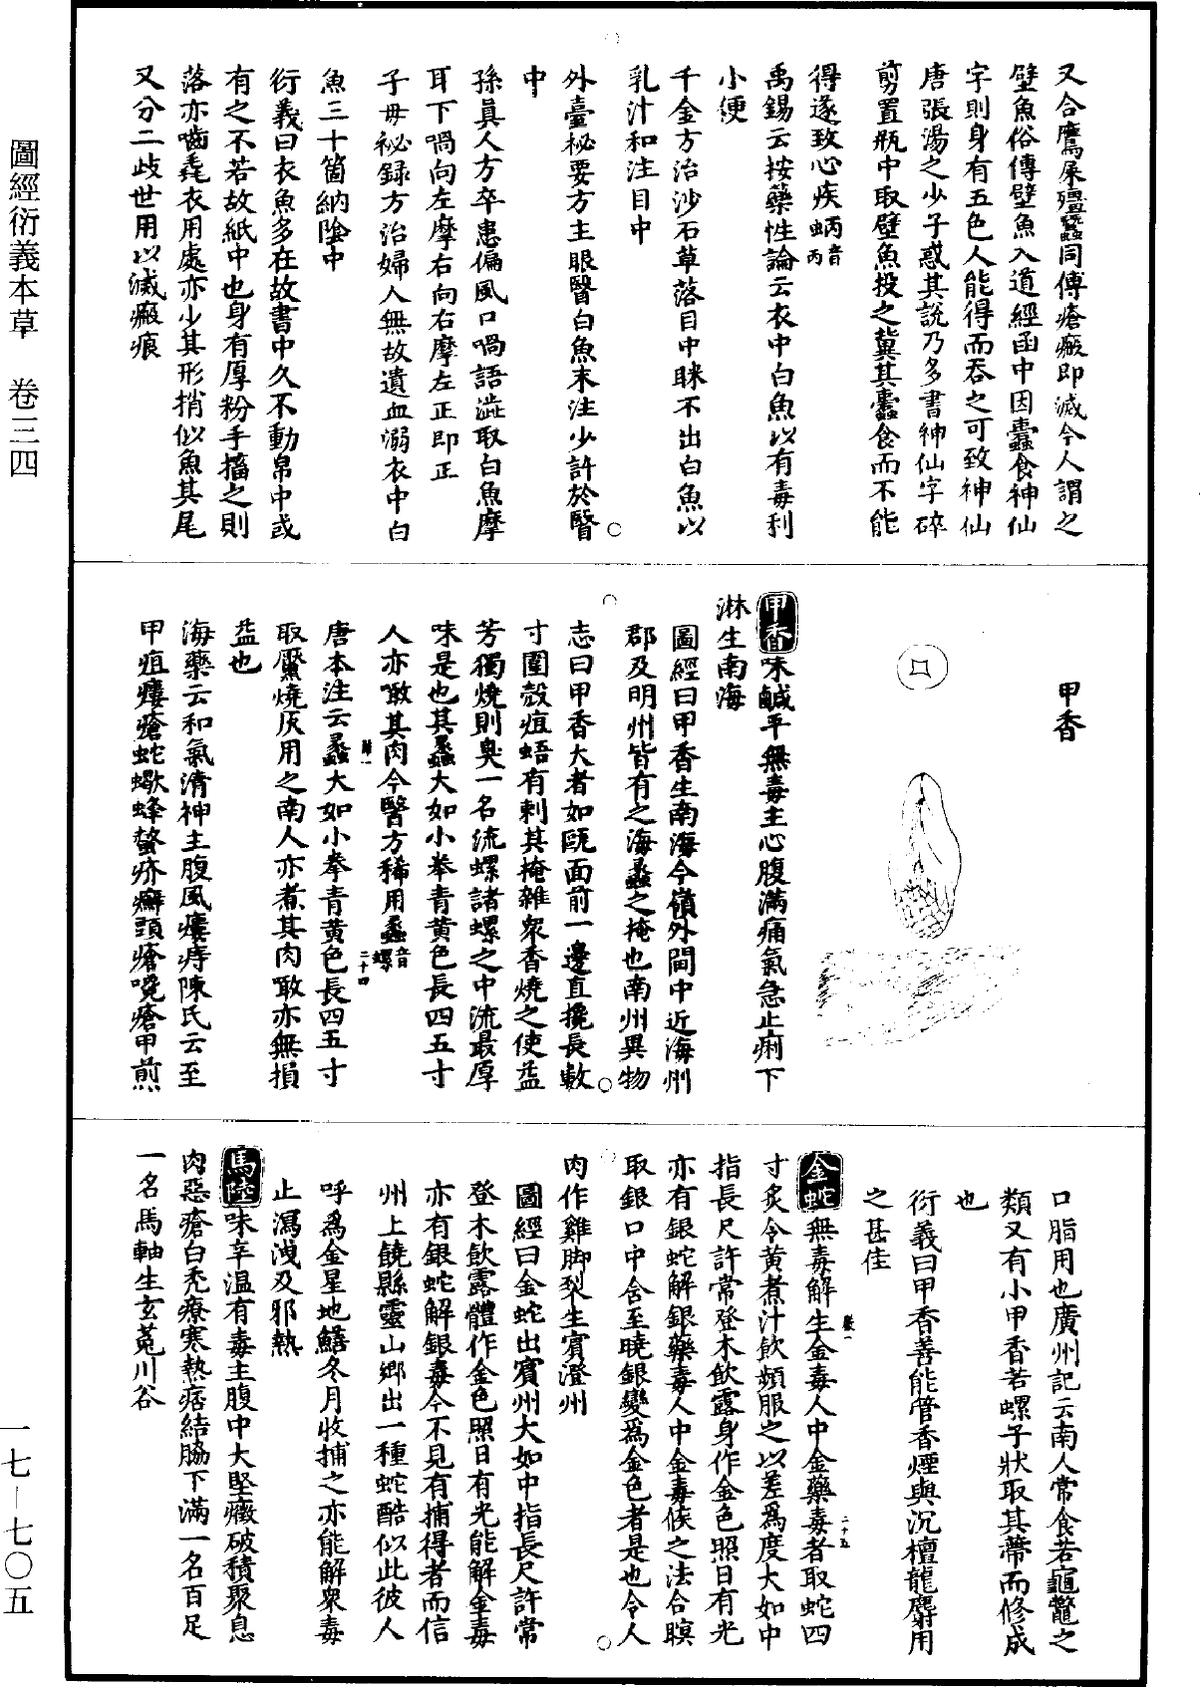 圖經衍義本草　卷三四
又合鷹屎殭蠶同傅瘡瘢即滅今人謂之
壁魚俗傳壁魚入道經函中因蠹食神仙
字則身有五色人能得而吞之可致神仙
唐張湯之少子惑其說乃多書神仙字碎
剪置瓶中取壁魚投之冀其蠹食而不能
得遂致心疾蛃音丙
禹錫云按藥性論云衣中白魚以有毒利
小便
千金方治沙石草落目中眯不出白魚以
乳汁和注目中
外臺秘要方主眼瞖白魚末注少許於瞖
中
孫真人方卒患偏風口喎語澁取白魚摩
耳下喎向左摩右向右摩左正即正
子母祕録方治婦人無故遺血溺衣中白
魚三十箇納陰中
衍義曰衣魚多在故書中久不動帛中或
有之不若故紙中也身有厚粉手搐之則
落亦嚙毳衣用處亦少其形捎似魚其尾
又分二歧世用以滅瘢痕
甲香
甲香味鹹平無毒主心腹滿痛氣急止痢下
淋生南海
圖經曰甲香生南海今嶺外閩中近海州
郡及明州皆有之海蠡之掩也南州異物
志曰甲香大者如甌面前一邊直攙長數
寸圍殼㽿蛣有刺其掩雜衆香燒之使益
芳獨燒則臭一名流螺諸螺之中流最厚
味是也其蠡大如小拳青黄色長四五寸
人亦噉其肉今醫方稀用蠡音螺
唐本注云蠡大如小拳青黄色長四五寸
取黶燒灰用之南人亦煮其肉噉亦無損
益也
海藥云和氣清神主腹風瘻痔陳氏云至
甲疽瘻瘡蛇蠍蜂螫疥癬頭瘡嚵瘡甲煎
口脂用也廣州記云南人常食若龜鼈之
類又有小甲香若螺子狀取其蔕而修成
也
衍義曰甲香善能管香煙與沉檀龍麝用
之甚佳
金蛇無毒解生金毒人中金藥毒者取蛇四
寸炙令黄煮汁飲頻服之以差爲度大如中
指長尺許常登木飲露身作金色照日有光
亦有銀蛇解銀藥毒人中金毒候之法合瞑
取銀口中含至曉銀變爲金色者是也令人
肉作雞脚裂生賓澄州
圖經曰金蛇出賓州大如中指長尺許常
登木飲露體作金色照日有光能解金毒
亦有銀蛇解銀毒今不見有捕得者而信
州上饒縣靈山鄉出一種蛇酷似此彼人
呼爲金星地鱔冬月收捕之亦能解衆毒
止瀉洩及邪熱
馬陸味辛温有毒主腹中大堅癥破積聚息
肉惡瘡白禿療寒熱痞結脇下滿一名百足
一名馬軸生玄菟川谷
一七—七〇五